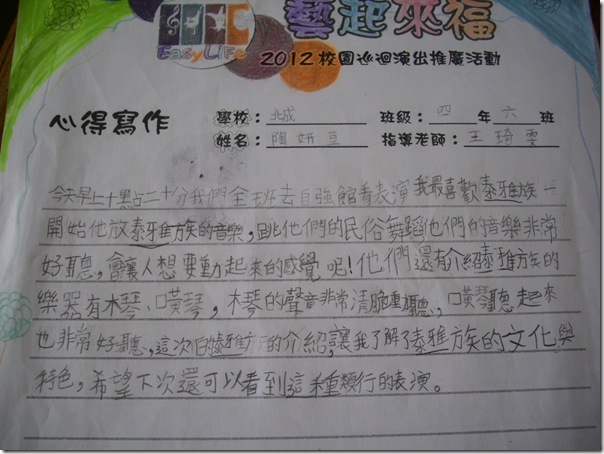 藝起來福
EasyLife
2012校園巡迴演出推廣活動
心得寫作
學校：北城 班級：四年六班
姓名：陶妍豆 指導老師：王琦雯
今天早上十點二十分我們全班去自強館看表演我最喜歡泰雅族一
開始他放泰雅族的音樂，跳他們的民俗舞蹈他們的音樂非常
好聽，會讓人想要動起來的感覺呢！他們還有介紹泰雅族的
樂器有木琴、口簧琴，木琴的聲音非常清脆重聽，口簧琴聽起來
也非常好聽，這次的泰雅族的介紹，讓我了解了泰雅族的文化與
特色，希望下次還可以看到這種類行的表演。